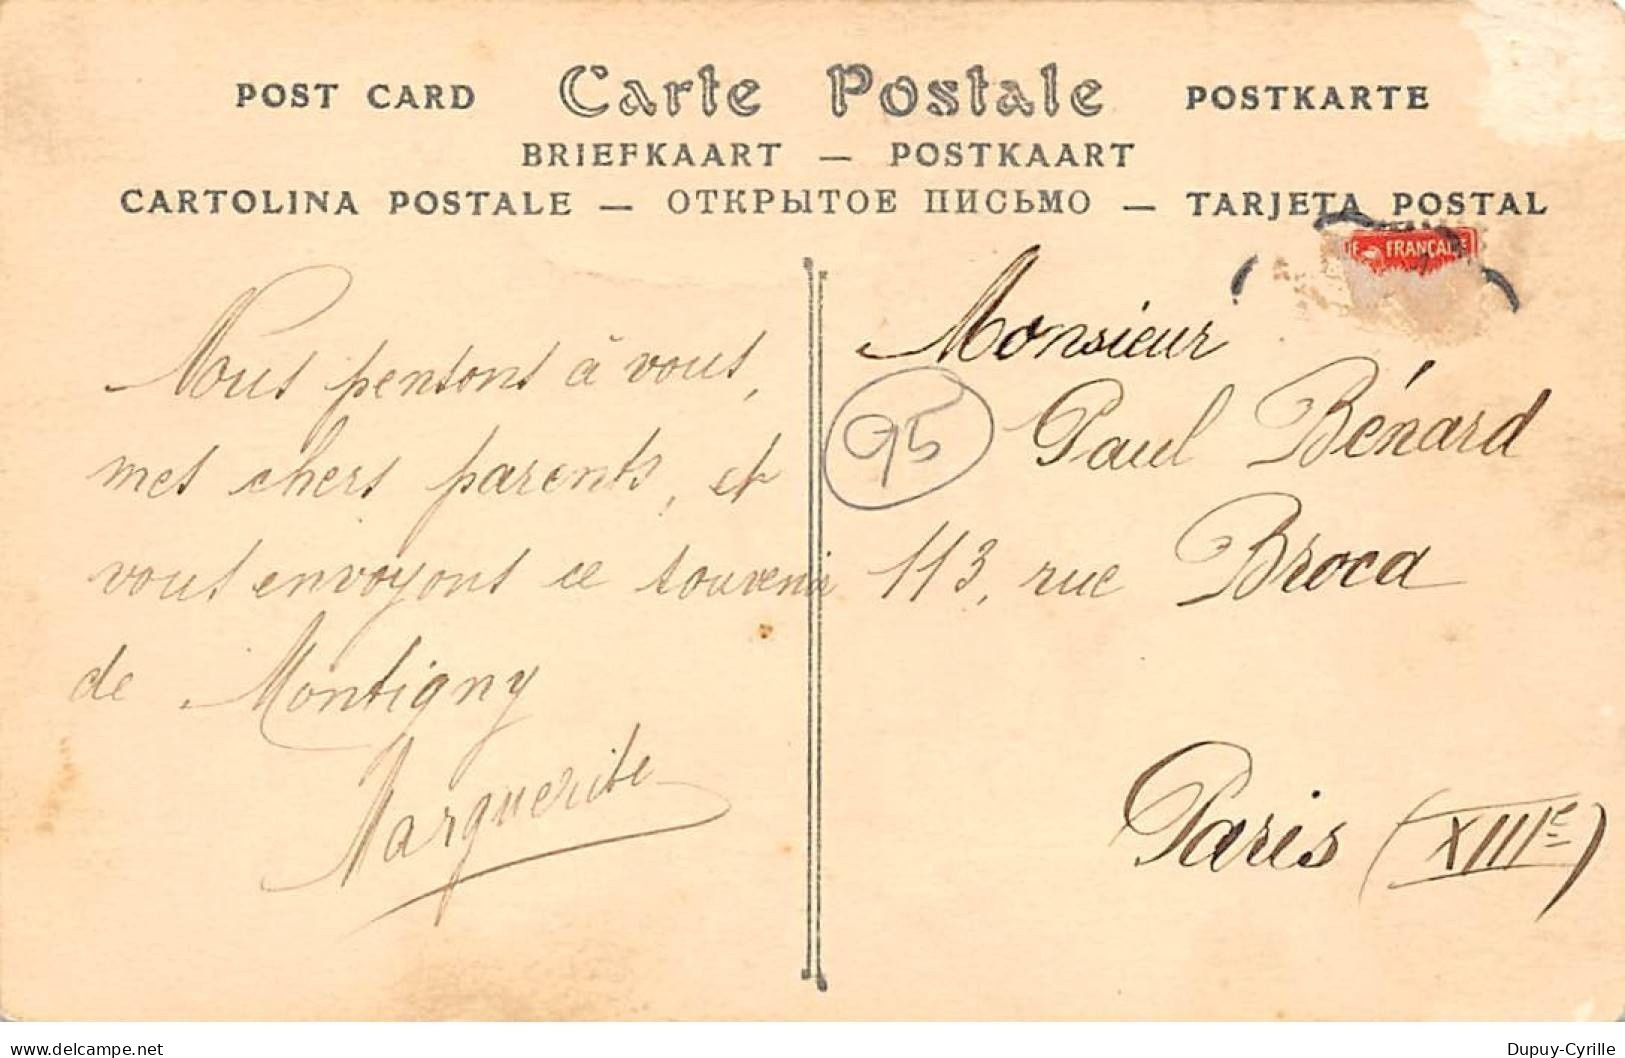 POST CARD Carte Postale POSTKARTE
BRIEFKAART — POSTKAART
CARTOLINA POSTALE — ОТКРЫТОЕ ПИСЬМО — TARJETA POSTAL
UE FRANÇAISE
Nous pensons à vous,
mes chers parents, et
vous envoyons ce souvenir
de Montigny
Marguerite
95
Monsieur
Paul Bénard
113, rue Broca
Paris (XIIIe)
delcampe.net
Dupuy-Cyrille